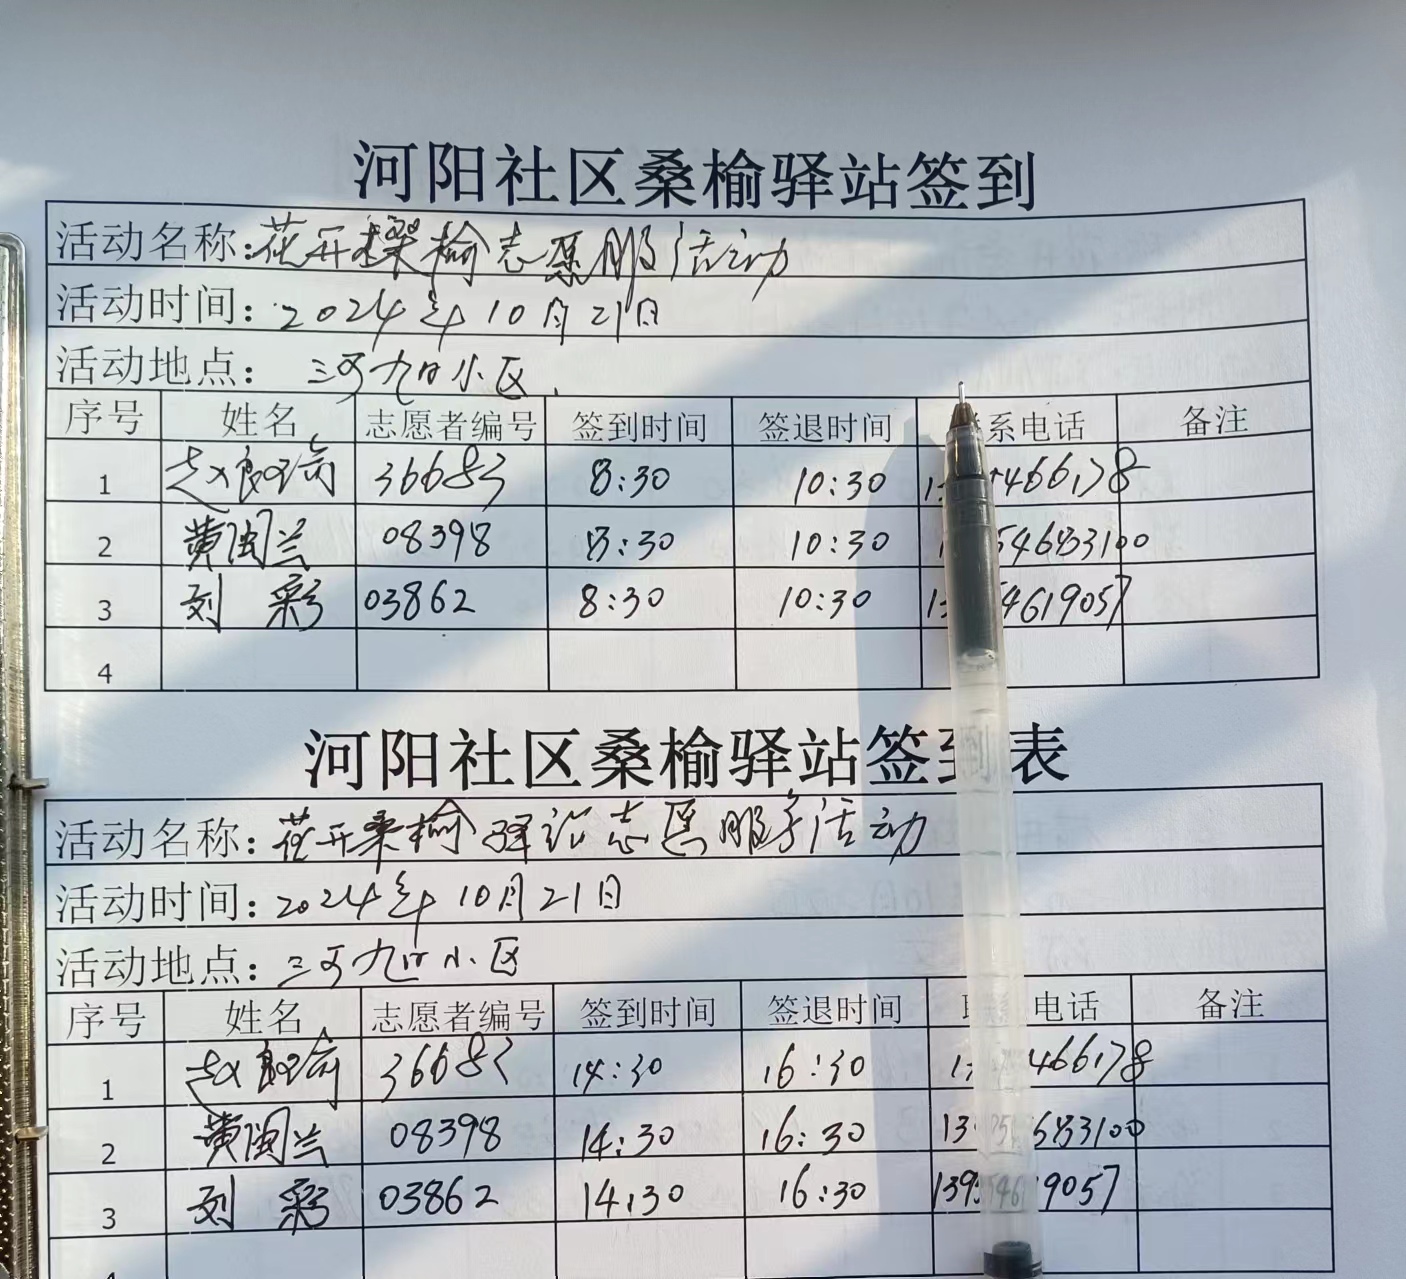 河阳社区桑榆驿站签到
活动名称:花开桑榆志愿服活动
活动时间: 2024年10月21日
活动地点: 三河九郡小区
序号 姓名 志愿者编号 签到时间 签退时间 系电话 备注
1 赵良瑜 36683 8:30 10:30 466178
2 黄闽兰 08398 8:30 10:30 54683100
3 刘彩 03862 8:30 10:30 4619057
4
河阳社区桑榆驿站签到表
活动名称:花开桑榆驿站志愿服务活动
活动时间:2024年10月21日
活动地点:三河九郡小区
序号 姓名 志愿者编号 签到时间 签退时间 联系电话 备注
1 赵良瑜 36683 14:30 16:30 466178
2 黄闽兰 08398 14:30 16:30 13 683100
3 刘彩 03862 14:30 16:30 139 9057